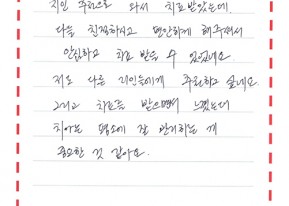 지인 추천으로 와서 치료받았는데,
다들 친절하시고 편안하게 해주셔서
안심하고 치료 받을 수 있었네요.
저도 다른 지인들에게 추천하고 싶네요.
그리고 치료를 받으면서 느꼈는데
치아는 평소에 잘 관리하는 게
중요한 것 같아요.